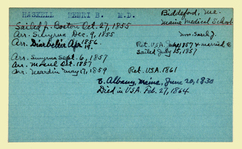 HASKELL HENRY B. M.D. Biddeford, Me.
Maine Medical School
Sailed fr. Boston Oct. 27, 1855
Arr. Smyrna Dec. 9, 1855
Arr. Diarbekir Apr 1856
Ret. USA. 1857 married &
sailed July 13, 1857
Arr. Smyrna Sept. 6, 1857
Arr. Mosul Oct. 1857
Arr. Mardin May 17, 1859 Ret. USA. 1861
b. Albany, Maine, June 20, 1830
Died in USA. Feb. 27, 1864